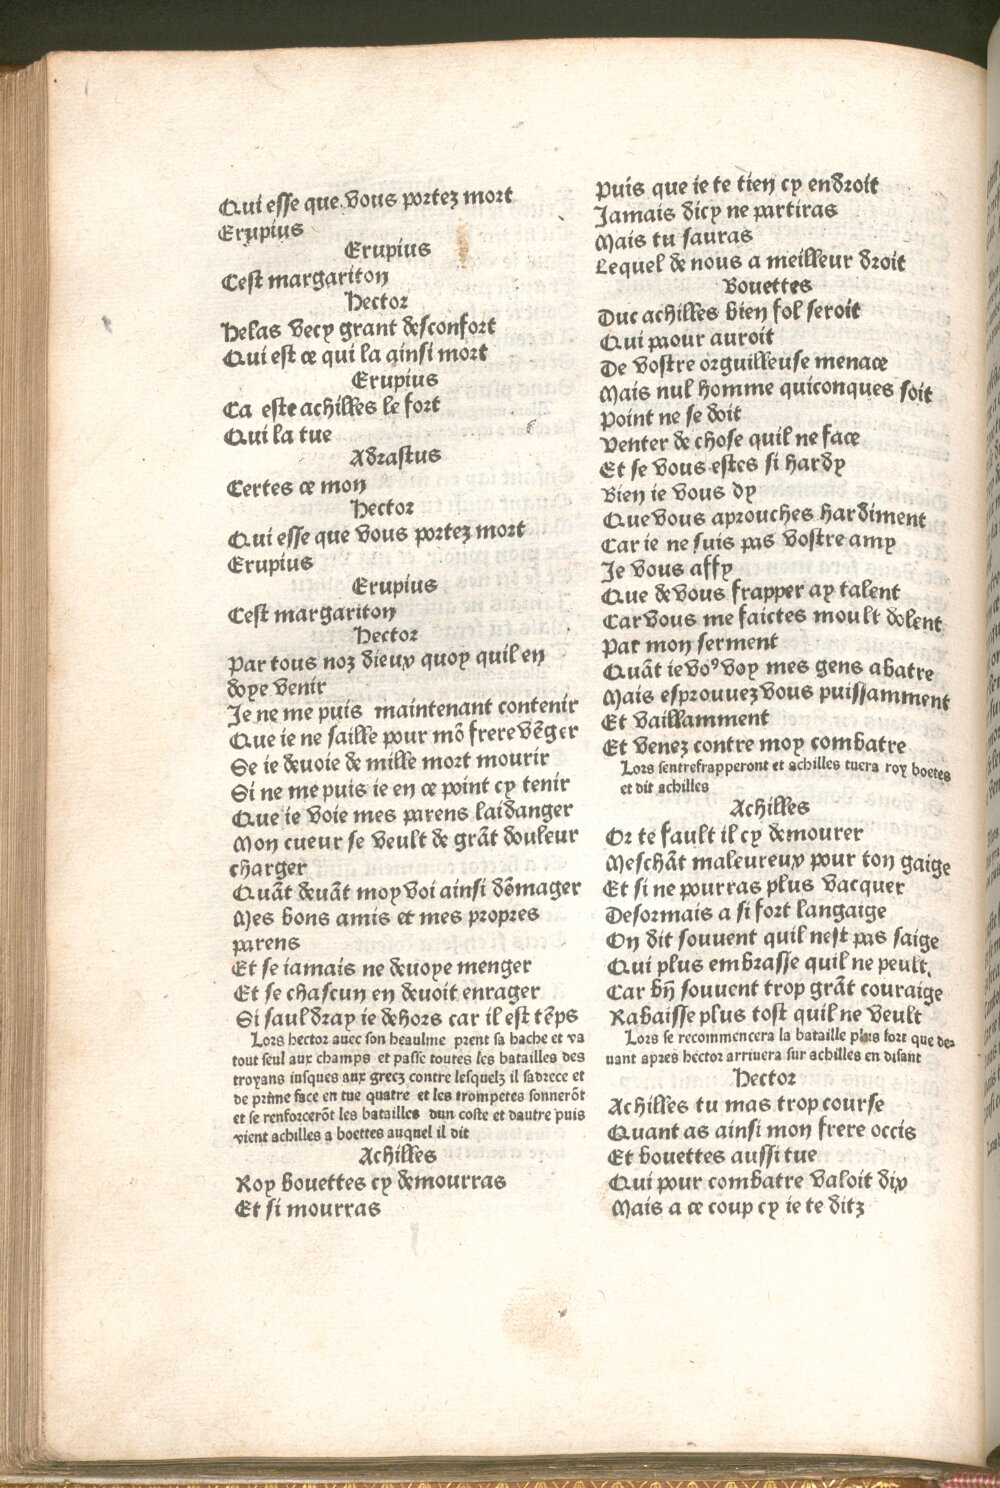 Qui esse que vous portez mort
Erupius
Erupius
Cest margariton
Hector
Helas vecy grant desconfort
Qui est ce qui la ainsi mort
Erupius
Ca este achilles le fort
Qui la tue
Adrastus
Certes ce mon
Hector
Qui esse que vous portez mort
Erupius
Erupius
Cest margariton
Hector
Par tous noz dieux quoy quil en
doye venir
Je ne me puis maintenant contenir
Que ie ne saille pour mō frere vēger
Se ie devoie de mille mort mourir
Si ne me puis ie en ce point cy tenir
Que ie voie mes parens laidanger
Mon cueur se veult de grāt douleur
charger
Quāt devāt moy voi ainsi dōmager
Mes bons amis et mes propres
parens
Et se iamais ne devoye menger
Et se chascun en devoit enrager
Si sauldray ie dehors car il est tēps
Lors hector avec son heaulme prent sa hache et va
tout seul aux champs et passe toutes les batailles des
troyans iusques aux grecz contre lesquelz il sadrece et
de prime face en tue quatre et les trompetes sonnerōt
et se renforcerōt les batailles dun coste et dautre puis
vient achilles a boettes auquel il dit
Achilles
Roy bouettes cy demourras
Et si mourras
Puis que ie te tien cy endroit
Jamais dicy ne partiras
Mais tu sauras
Lequel de nous a meilleur droit
Bouettes
Duc achilles bien fol seroit
Qui paour auroit
De vostre orguilleuse menace
Mais nul homme quiconques soit
Point ne se doit
Venter de chose quil ne face
Et se vous estes si hardy
Bien ie vous dy
Que vous aprouches hardiment
Car ie ne suis pas vostre amy
Je vous affy
Que de vous frapper ay talent
Car vous me faictes moult dolent
Par mon serment
Quāt ie voꝰ voy mes gens abatre
Mais esprouvez vous puissamment
Et vaillamment
Et venez contre moy combatre
Lors sentrefrapperont et achilles tuera roy boetes
et dit achilles
Achilles
Or te fault il cy demourer
Meschāt maleureux pour ton gaige
Et si ne pourras plus vacquer
Desormais a si fort langaige
On dit souvent quil nest pas saige
Qui plus embrasse quil ne peult.
Car bn̄ souvent trop grāt couraige
Rabaisse plus tost quil ne veult
Lors se recommencera la bataille plus fort que de-
vant apres hector arrivera sur achilles en disant
Hector
Achilles tu mas trop course
Quant as ainsi mon frere occis
Et bouettes aussi tue
Qui pour combatre valoit dix
Mais a ce coup cy ie te ditz